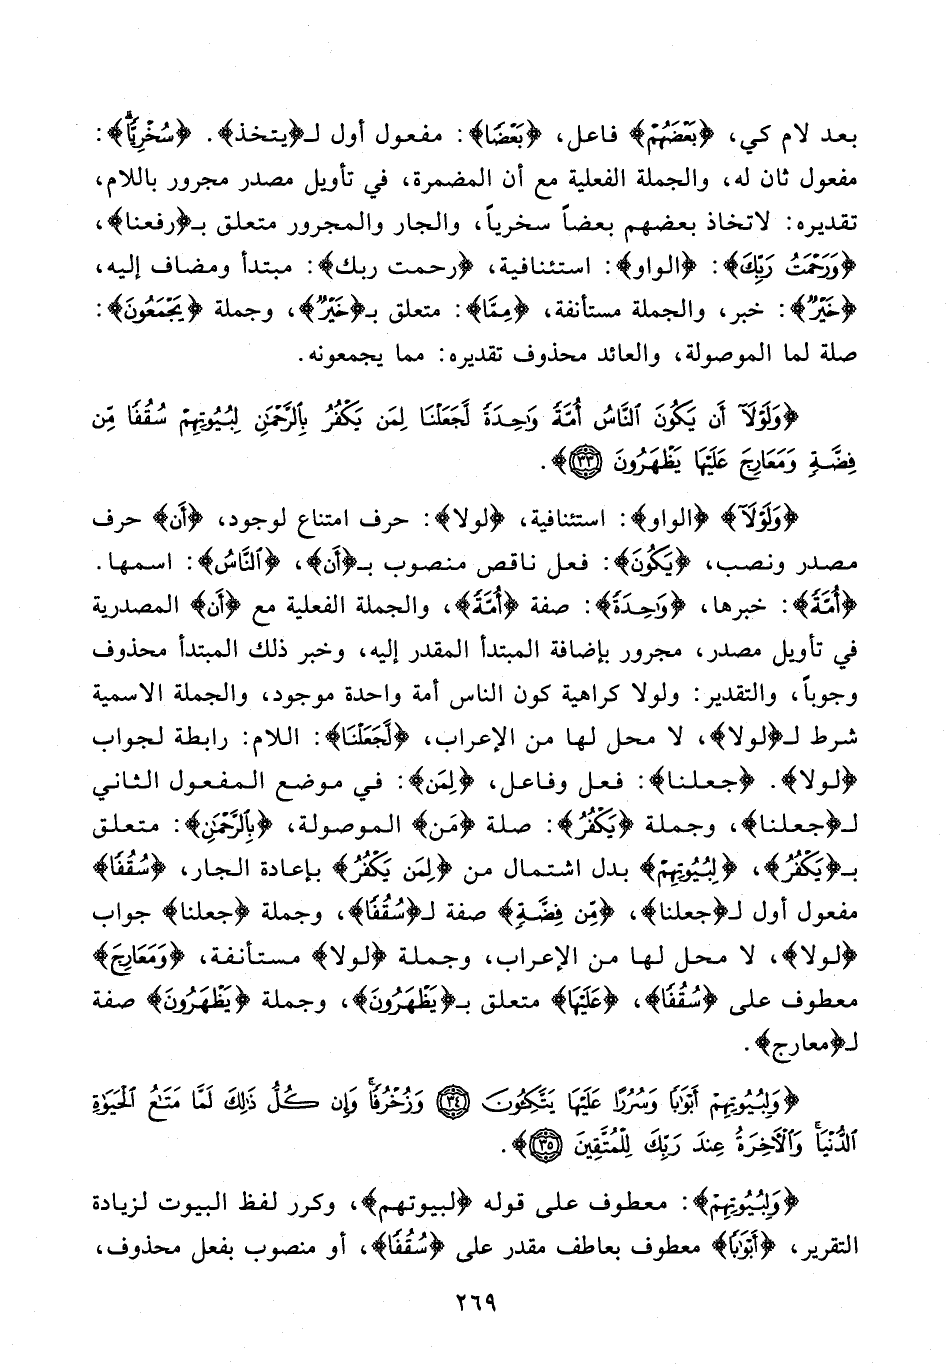 بعد لام كي، ﴿بَعْضُهُم﴾ فاعل، ﴿بَعْضًا﴾: مفعول أول لـ﴿يتخذ﴾. ﴿سُخْرِيًّا﴾:
مفعول ثان له، والجملة الفعلية مع أن المضمرة، في تأويل مصدر مجرور باللام،
تقديره: لاتخاذ بعضهم بعضاً سخرياً، والجار والمجرور متعلق بـ﴿رفعنا﴾،
﴿وَرَحْمَتُ رَبِّكَ﴾: ﴿الواو﴾: استئنافية، ﴿رحمت ربك﴾: مبتدأ ومضاف إليه،
﴿خَيْرٌ﴾: خبر، والجملة مستأنفة، ﴿مِمَّا﴾: متعلق بـ﴿خَيْرٌ﴾، وجملة ﴿يَجْمَعُونَ﴾:
صلة لما الموصولة، والعائد محذوف تقديره: مما يجمعونه.
﴿وَلَوْلَآ أَن يَكُونَ ٱلنَّاسُ أُمَّةً وَٰحِدَةً لَّجَعَلْنَا لِمَن يَكْفُرُ بِٱلرَّحْمَٰنِ لِبُيُوتِهِمْ سُقُفًا مِّن
فِضَّةٍ وَمَعَارِجَ عَلَيْهَا يَظْهَرُونَ ٣٣﴾.
﴿وَلَوْلَآ﴾ ﴿الواو﴾: استئنافية، ﴿لولا﴾: حرف امتناع لوجود، ﴿أَن﴾ حرف
مصدر ونصب، ﴿يَكُونَ﴾: فعل ناقص منصوب بـ﴿أَن﴾، ﴿ٱلنَّاسُ﴾: اسمها.
﴿أُمَّةً﴾: خبرها، ﴿وَٰحِدَةً﴾: صفة ﴿أُمَّةً﴾، والجملة الفعلية مع ﴿أَن﴾ المصدرية
في تأويل مصدر، مجرور بإضافة المبتدأ المقدر إليه، وخبر ذلك المبتدأ محذوف
وجوباً، والتقدير: ولولا كراهية كون الناس أمة واحدة موجود، والجملة الاسمية
شرط لـ﴿لولا﴾، لا محل لها من الإعراب، ﴿لَّجَعَلْنَا﴾: اللام: رابطة لجواب
﴿لولا﴾. ﴿جعلنا﴾: فعل وفاعل، ﴿لِمَن﴾: في موضع المفعول الثاني
لـ﴿جعلنا﴾، وجملة ﴿يَكْفُرُ﴾: صلة ﴿مَن﴾ الموصولة، ﴿بِٱلرَّحْمَٰنِ﴾: متعلق
بـ﴿يَكْفُرُ﴾، ﴿لِبُيُوتِهِمْ﴾ بدل اشتمال من ﴿لِمَن يَكْفُرُ﴾ بإعادة الجار، ﴿سُقُفًا﴾
مفعول أول لـ﴿جعلنا﴾، ﴿مِّن فِضَّةٍ﴾ صفة لـ﴿سُقُفًا﴾، وجملة ﴿جعلنا﴾ جواب
﴿لولا﴾، لا محل لها من الإعراب، وجملة ﴿لولا﴾ مستأنفة، ﴿وَمَعَارِجَ﴾
معطوف على ﴿سُقُفًا﴾، ﴿عَلَيْهَا﴾ متعلق بـ﴿يَظْهَرُونَ﴾، وجملة ﴿يَظْهَرُونَ﴾ صفة
لـ﴿معارج﴾.
﴿وَلِبُيُوتِهِمْ أَبْوَٰبًا وَسُرُرًا عَلَيْهَا يَتَّكِـُٔونَ ٣٤ وَزُخْرُفًا ۚ وَإِن كُلُّ ذَٰلِكَ لَمَّا مَتَٰعُ ٱلْحَيَوٰةِ
ٱلدُّنْيَا ۚ وَٱلْءَاخِرَةُ عِندَ رَبِّكَ لِلْمُتَّقِينَ ٣٥﴾.
﴿وَلِبُيُوتِهِمْ﴾: معطوف على قوله ﴿لبيوتهم﴾، وكرر لفظ البيوت لزيادة
التقرير، ﴿أَبْوَٰبًا﴾ معطوف بعاطف مقدر على ﴿سُقُفًا﴾، أو منصوب بفعل محذوف،
٢٦٩